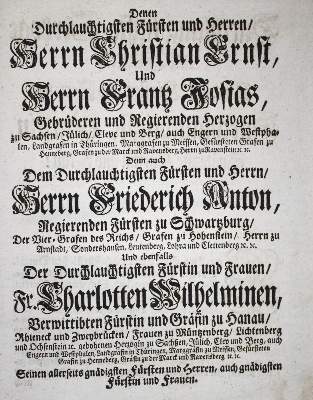 Denen
Durchlauchtigsten Fürsten und Herren/
Herrn Christian Ernst,
Und
Herrn Frantz Josias,
Gebrüderen und Regierenden Herzogen
zu Sachsen/Jülich/Cleve und Berg/auch Engern und Westpha-
len, Landgrafen in Thüringen, Marggrafen zu Meissen, Gefürsteten Grafen zu
Henneberg, Grafen zu der Marck und Ravensberg, Herrn zu Ravenstein ꝛc. ꝛc.
Denn auch
Dem Durchlauchtigsten Fürsten und Herrn/
Herrn Friederich Anton,
Regierenden Fürsten zu Schwartzburg/
Der Vier-Grafen des Reichs/Grafen zu Hohenstein/Herrn zu
Arnstadt, Sondershausen, Leutenberg, Lohra und Clettenberg ꝛc. ꝛc.
Und ebenfalls
Der Durchlauchtigsten Fürstin und Frauen/
Fr. Charlotten Wilhelminen,
Verwittibten Fürstin und Gräfin zu Hanau/
Rhieneck und Zweybrücken/Frauen zu Müntzenberg/Lichtenberg
und Ochsenstein ꝛc. gebohrnen Herzogin zu Sachsen, Jülich, Clev und Berg, auch
Engern und Westphalen, Landgräfin in Thüringen, Marggräfin zu Meissen, Gefürsteten
Gräfin zu Henneberg, Gräfin zu der Marck und Ravensberg ꝛc. ꝛc.
Seinen allerseits gnädigsten Fürsten und Herren, auch gnädigsten
Fürstin und Frauen.